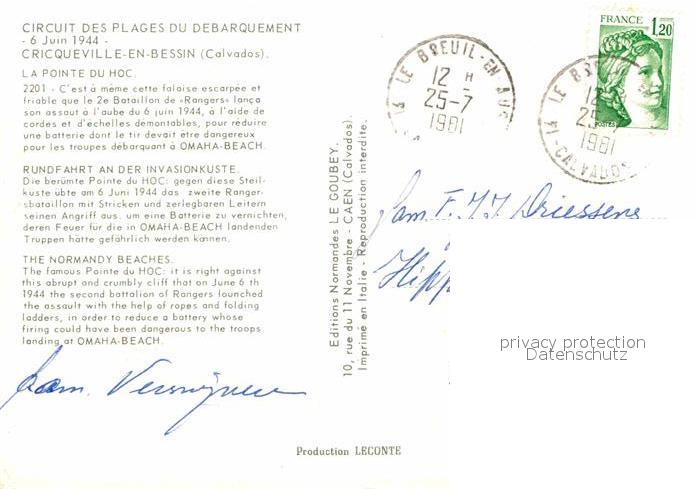 CIRCUIT DES PLAGES DU DEBARQUEMENT
- 6 Juin 1944 -
CRICQUEVILLE-EN-BESSIN (Calvados).
LA POINTE DU HOC.
2201 - C'est à même cette falaise escarpée et
friable que le 2e Bataillon de «Rangers» lança
son assaut à l'aube du 6 juin 1944, à l'aide de
cordes et d'échelles démontables, pour réduire
une batterie dont le tir devait être dangereux
pour les troupes débarquant à OMAHA-BEACH.
RUNDFAHRT AN DER INVASIONKUSTE.
Die berümte Pointe du HOC: gegen diese Steil-
küste übte am 6 Juni 1944 das zweite Rangers-
bataillon mit Stricken und zerlegbaren Leitern
seinen Angriff aus. um eine Batterie zu vernichten,
deren Feuer für die in OMAHA-BEACH landenden
Truppen hätte gefährlich werden können.
THE NORMANDY BEACHES.
The famous Pointe du HOC: it is right against
this abrupt and crumbly cliff that on June 6 th
1944 the second battalion of Rangers lounched
the assault with the help of ropes and folding
ladders, in order to reduce a battery whose
firing could have been dangerous to the troops
landing at OMAHA-BEACH.
Editions Normandes LE GOUBEY.
10, rue du 11 Novembre - CAEN (Calvados).
Imprimé en Italie - Reproduction interdite.
14 LE BREUIL-EN AUGE
12 H
25-7
1981
FRANCE
1,20
POSTES
14 LE BREUIL
12
25-7
1981
-CALVADOS-
Fam. F. J. J. Driessens
Hipp
privacy protection
Datenschutz
Fam.
Production LECONTE